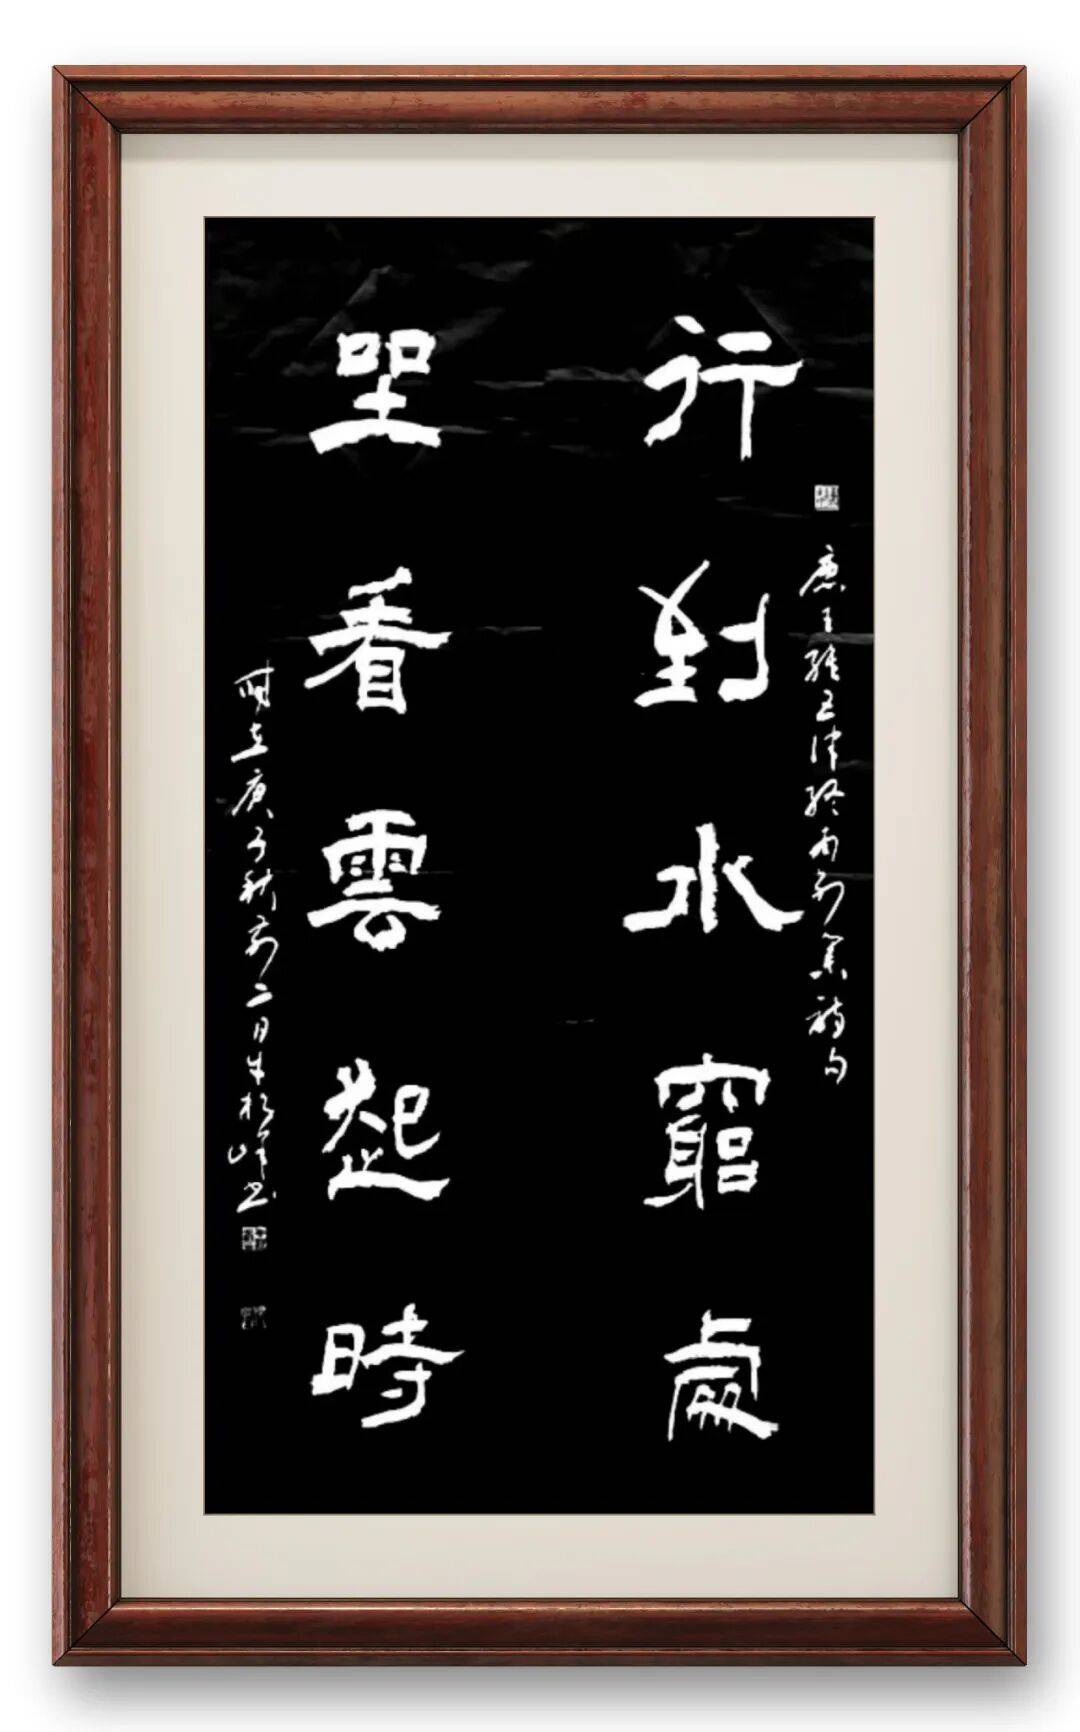 唐王維五律終南別業詩句
行到水窮處
坐看雲起時
時在庚子秋前二日松峰书